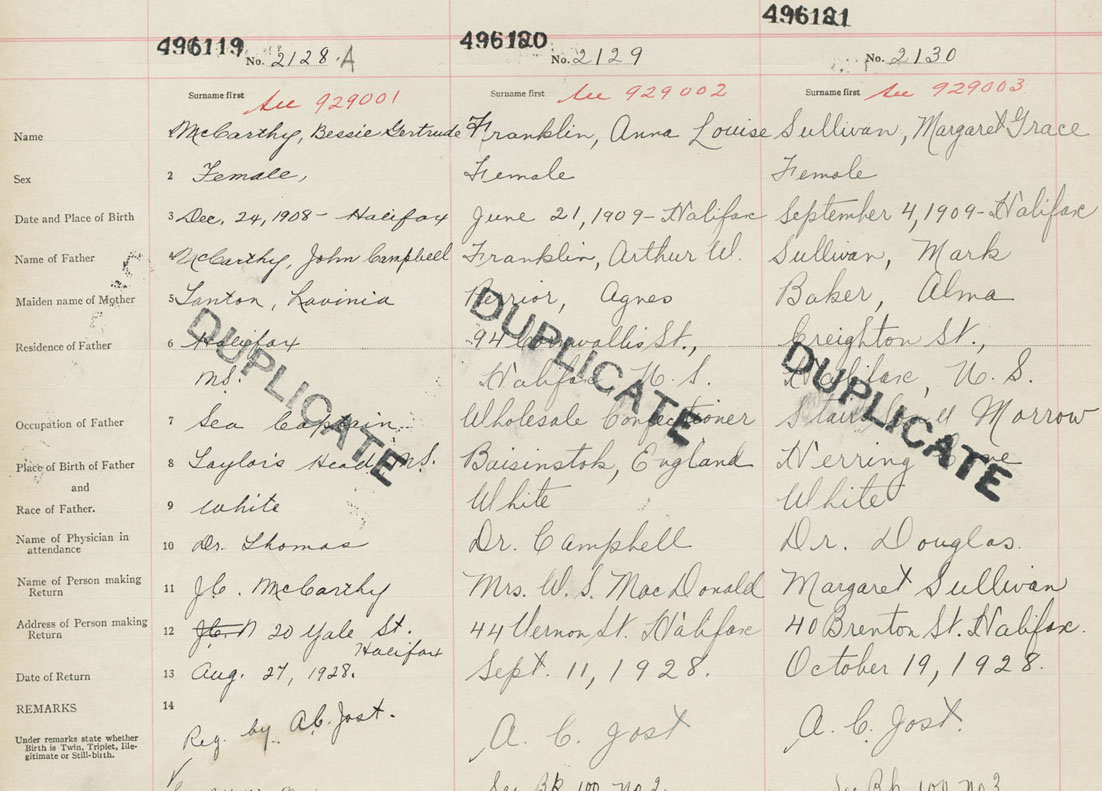 496119
496120
496121
No. 2128.A
No. 2129
No. 2130
Surname first See 929001
Surname first See 929002
Surname first See 929003
Name McCarthy, Bessie Gertrude Franklin, Anna Louise Sullivan, Margaret Grace
Sex 2 Female, Female Female
Date and Place of Birth 3 Dec. 24, 1908 - Halifax June 21, 1909 - Halifax September 4, 1909 - Halifax
Name of Father 4 McCarthy, John Campbell Franklin, Arthur W. Sullivan, Mark
Maiden name of Mother 5 Lavinia Agnes Baker, Alma
Residence of Father 6 Halifax 94 Cornwallis St., Creighton St.,
N.S. Halifax N.S. Halifax, N.S.
DUPLICATE DUPLICATE DUPLICATE
Occupation of Father 7 Sea Captain Wholesale Confectioner Morrow
Place of Birth of Father 8 Taylor's Head N.S. Baisinstok, England Herring Cove
and
Race of Father. 9 White White White
Name of Physician in
attendance 10 Dr. Thomas Dr. Campbell Dr. Douglas.
Name of Person making
Return 11 J.C. McCarthy Mrs. W. S. MacDonald Margaret Sullivan
Address of Person making
Return 12 20 Yale St. 44 Vernon St. Halifax 40 Brenton St. Halifax.
Halifax
Date of Return 13 Aug. 27, 1928. Sept. 11, 1928. October 19, 1928.
REMARKS 14
Reg. by A.C. Jost. A. C. Jost A. C. Jost.
Under remarks state whether
Birth is Twin, Triplet, Ille-
gitimate or Still-birth.
See Bk 100 no 2. See Bk 100 no 3